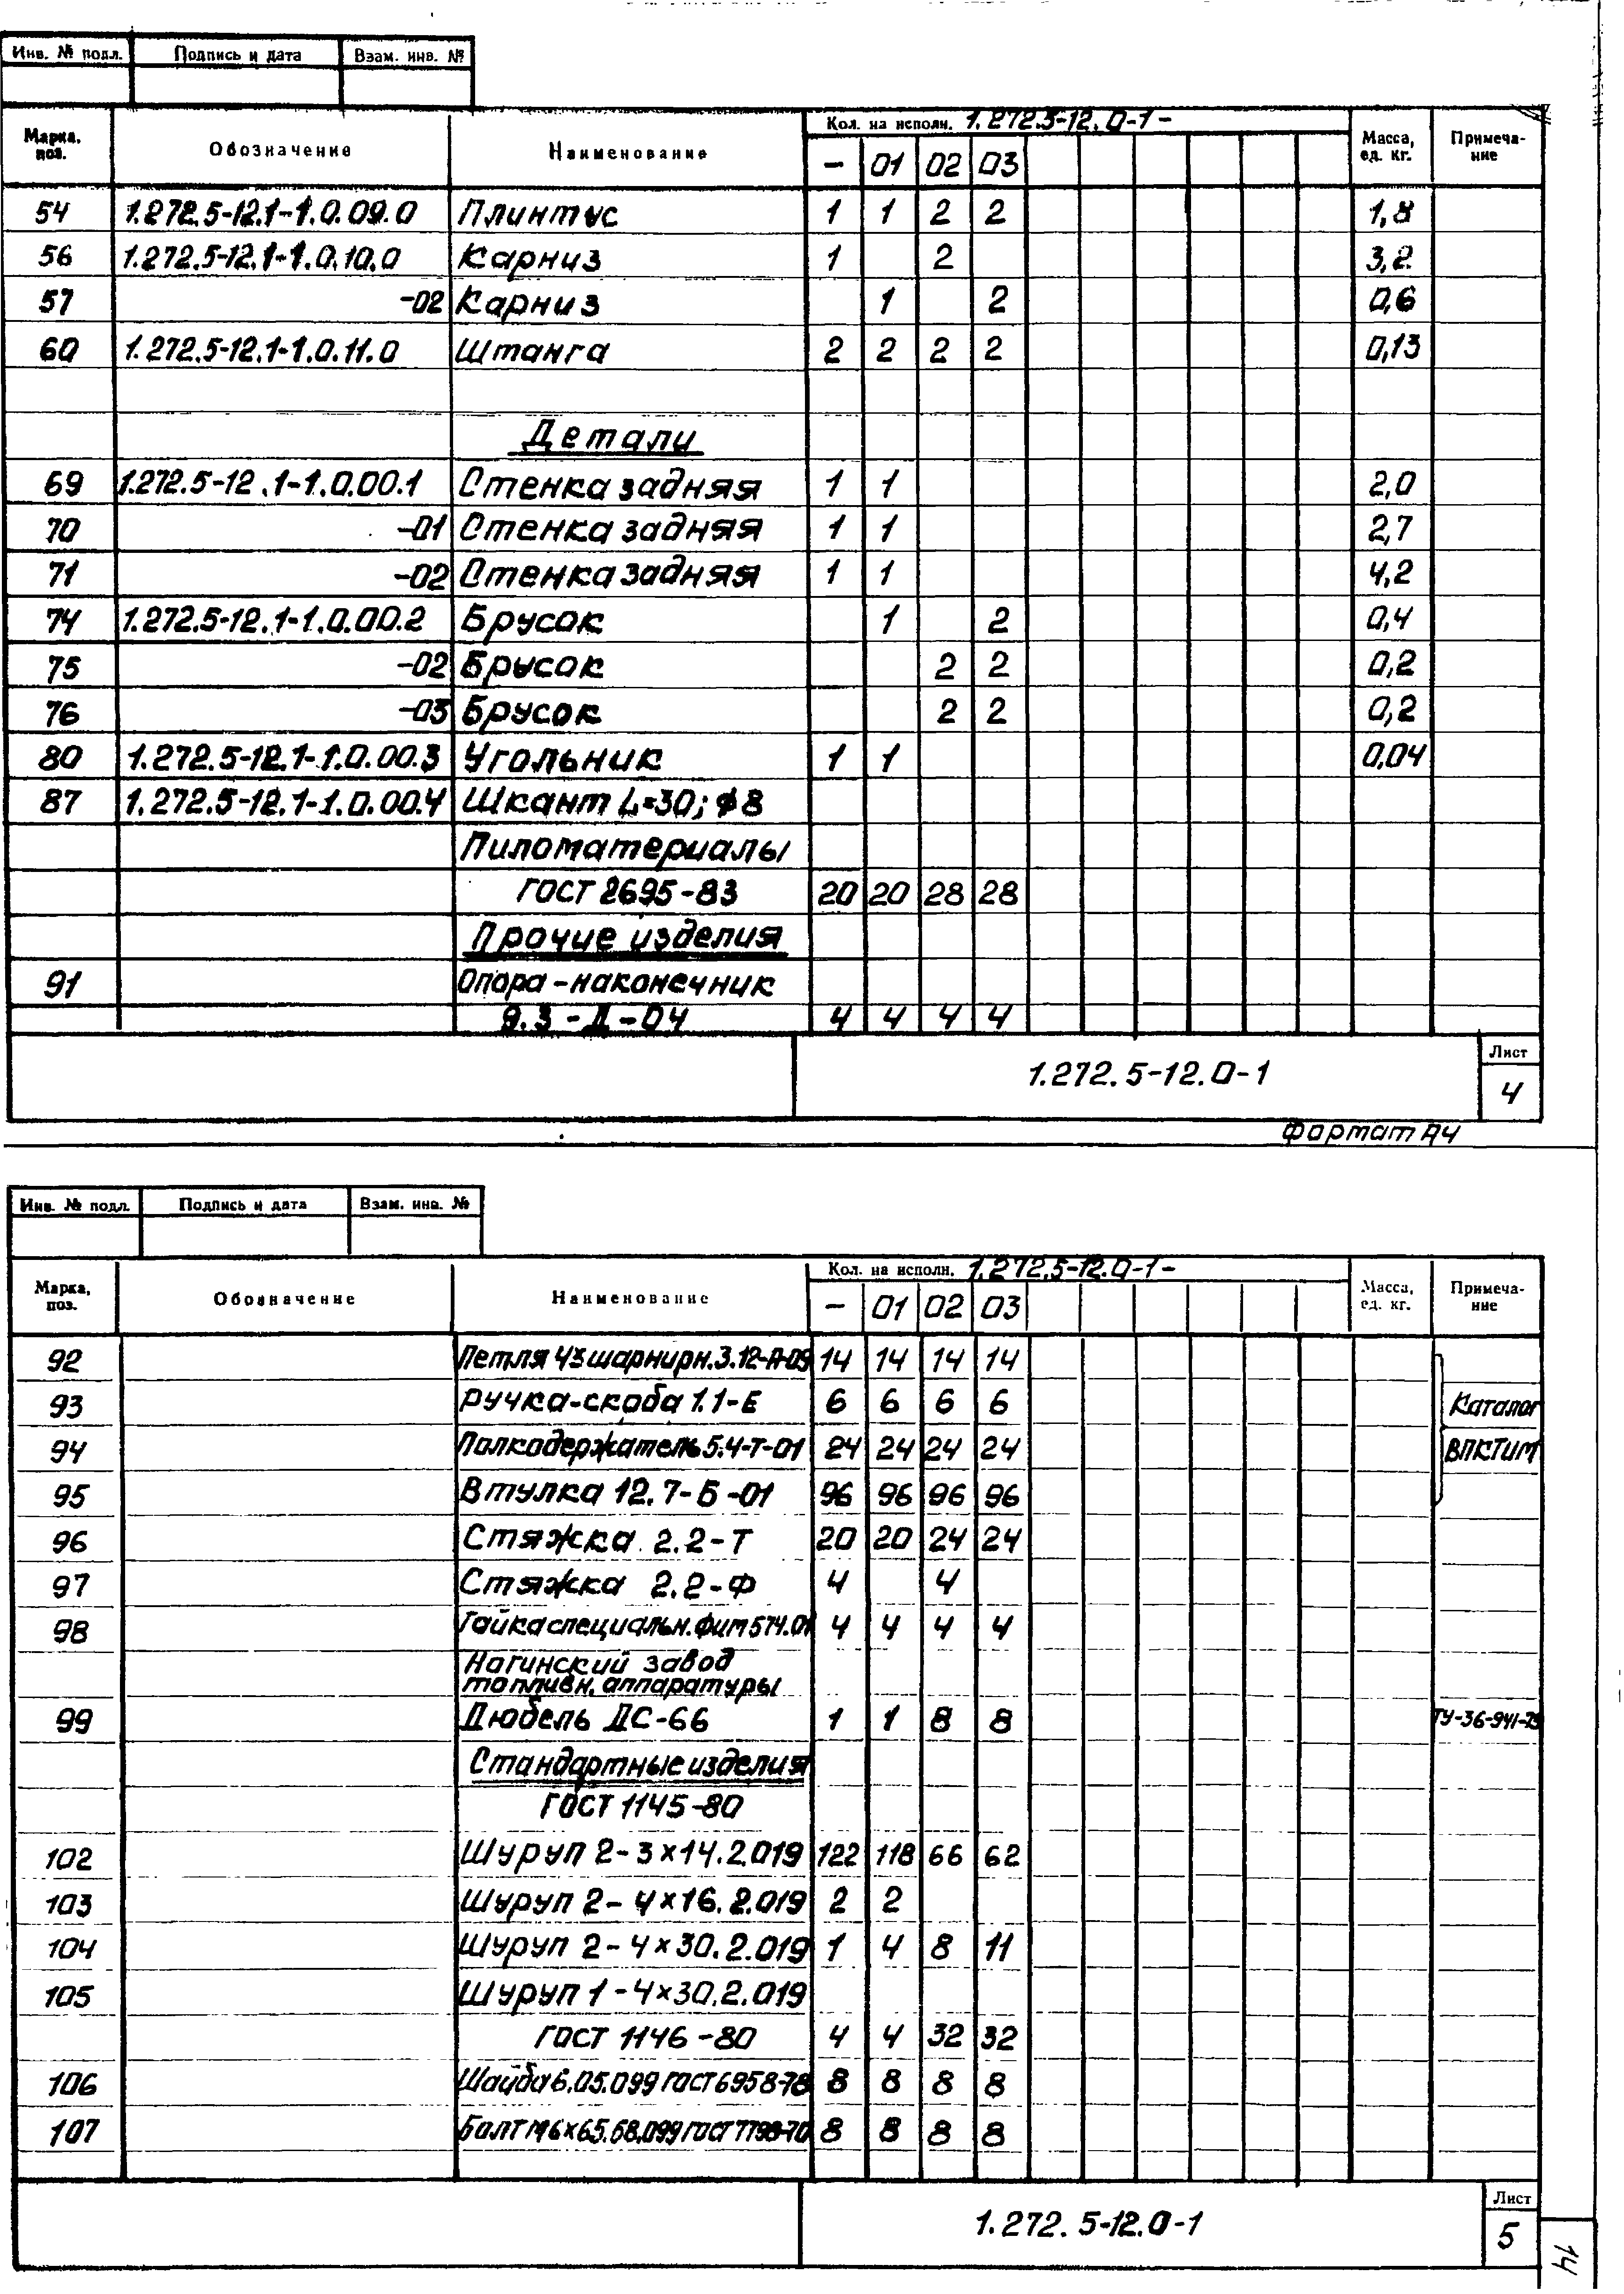 Инв. № подл. Подпись и дата Взам. инв. №
Марка, поз. Обозначение Наименование Кол. на исполн. 1.272.5-12.0-1- Масса, ед. кг. Примеча-ние
– 01 02 03
54 1.272.5-12.1-1.0.09.0 Плинтус 1 1 2 2 1,8
56 1.272.5-12.1-1.0.10.0 Карниз 1 2 3,2
57 -02 Карниз 1 2 0,6
60 1.272.5-12.1-1.0.11.0 Штанга 2 2 2 2 0,13
Детали
69 1.272.5-12.1-1.0.00.1 Стенка задняя 1 1 2,0
70 -01 Стенка задняя 1 1 2,7
71 -02 Стенка задняя 1 1 4,2
74 1.272.5-12.1-1.0.00.2 Брусок 1 2 0,4
75 -02 Брусок 2 2 0,2
76 -03 Брусок 2 2 0,2
80 1.272.5-12.1-1.0.00.3 Угольник 1 1 0,04
87 1.272.5-12.1-1.0.00.4 Шкант L=30; ϕ8
Пиломатериалы
ГОСТ 2695-83 20 20 28 28
Прочие изделия
91 Опора-наконечник
9.3-Д-04 4 4 4 4
1.272.5-12.0-1 Лист 4
Формат А4
Инв. № подл. Подпись и дата Взам. инв. №
Марка, поз. Обозначение Наименование Кол. на исполн. 1.272.5-12.0-1- Масса, ед. кг. Примеча-ние
– 01 02 03
92 Петля 4х шарнирн. 3.12-П-09 14 14 14 14
93 Ручка-скоба 1.1-Е 6 6 6 6 Каталог
94 Полкодержатель 5.4-Т-01 24 24 24 24 ВПКТИМ
95 Втулка 12.7-Б-01 96 96 96 96
96 Стяжка 2.2-Т 20 20 24 24
97 Стяжка 2.2-Ф 4 4
98 Гайка специальн. фит 574.01 4 4 4 4
Нагинский завод
топливн. аппаратуры
99 Дюбель ДС-66 1 1 8 8 ТУ-36-941-79
Стандартные изделия
ГОСТ 1145-80
102 Шуруп 2-3×14.2.019 122 118 66 62
103 Шуруп 2-4×16.2.019 2 2
104 Шуруп 2-4×30.2.019 1 4 8 11
105 Шуруп 1-4×30.2.019
ГОСТ 1146-80 4 4 32 32
106 Шайба 6.05.099 ГОСТ 6958-78 8 8 8 8
107 Болт М6×65.68.099 ГОСТ 7798-70 8 8 8 8
1.272.5-12.0-1 Лист 5
14